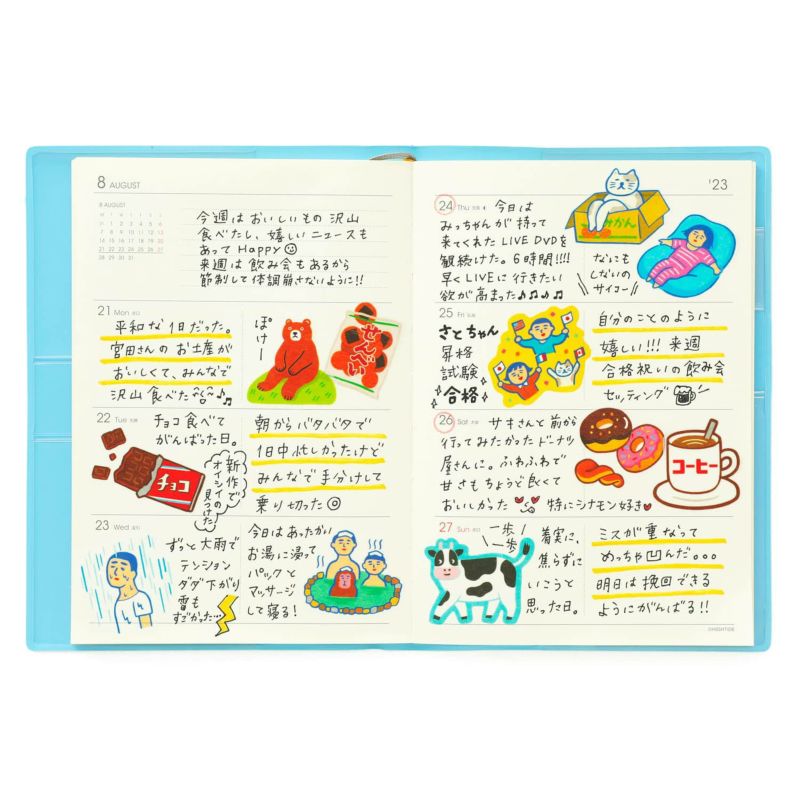 8 AUGUST
8 AUGUST
M T W T F S S
1 2 3 4 5 6
7 8 9 10 11 12 13
14 15 16 17 18 19 20
21 22 23 24 25 26 27
28 29 30 31
今週は おいしいもの 沢山
食べたし、嬉しい ニュースも
あって Happy
来週は 飲み会も あるから
節制して 体調崩さないように!!
21 Mon
平和な1日だった。
宮田さんの お土産が
おいしくて、みんなで
沢山 食べた
ぽけー
せんべい
22 Tue
チョコ 食べて
がんばった日。
チョコ
新作で
オイシイの
見つけた
朝から バタバタで
1日中 忙しかったけど
みんなで 手分けして
乗り切った
23 Wed
ずっと 大雨で
テンション
ダダ下がり
雷も
すごかった…
今日は あったかい
お湯に浸って
パックと
マッサージ
して寝る!
'23
24 Thu
今日は
みっちゃんが 持って
来てくれた LIVE DVDを
観続けた。6時間!!!!
早く LIVEに 行きたい
欲が 高まった♪♪♪♪
みかん
なにも
しないの
サイコー
25 Fri
さとちゃん
昇格
試験
合格
自分のことのように
嬉しい!!! 来週
合格祝いの飲み会
セッティング
26 Sat
サキさんと 前から
行ってみたかった ドーナツ
屋さんに。ふわふわで
甘さも ちょうど良くて
おいしかった 特にシナモン好き
コーヒー
27 Sun
一歩
一歩
着実に、
焦らずに
いこうと
思った日。
ミスが 重なって
めっちゃ凹んだ。。。
明日は 挽回できる
ように がんばる!!
©HIGHTIDE